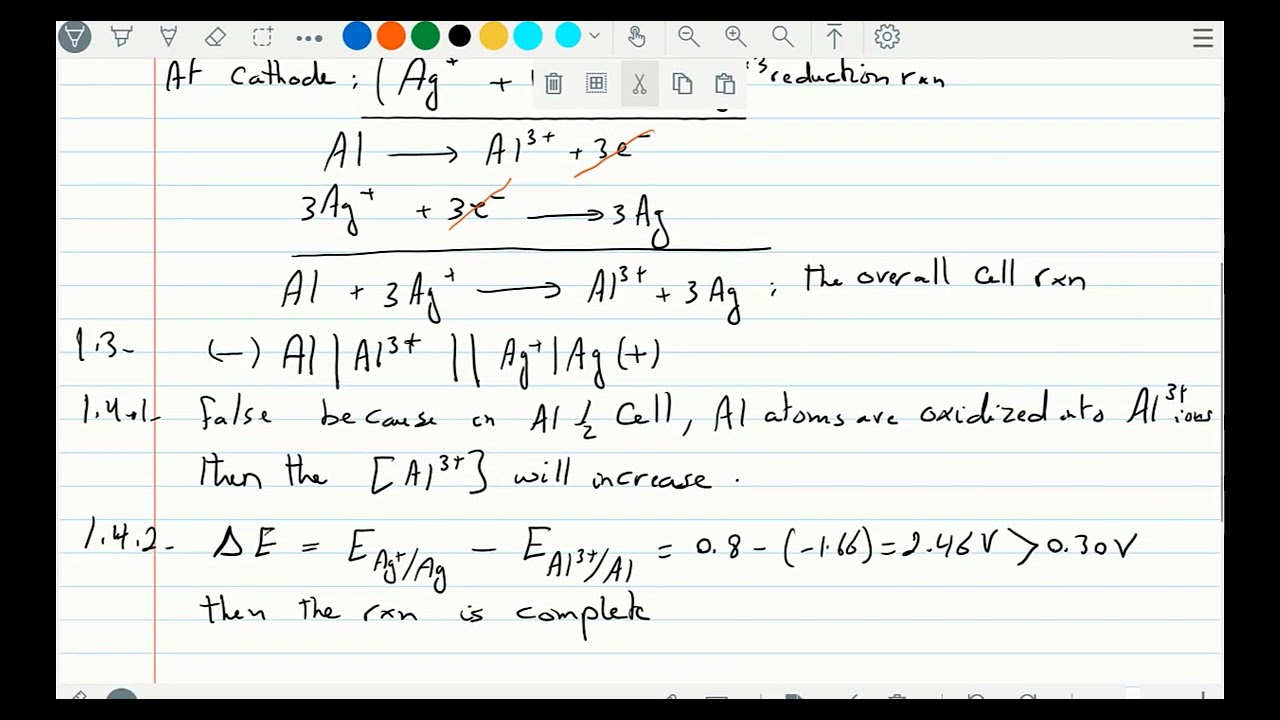 At Cathode ; (Ag⁺ + reduction rxn
Al ⟶ Al³⁺ + 3e⁻
3Ag⁺ + 3e⁻ ⟶ 3Ag
Al + 3Ag⁺ ⟶ Al³⁺ + 3Ag ; the overall cell rxn
1.3- (−) Al | Al³⁺ || Ag⁺ | Ag (+)
1.4.1- False because in Al ½ Cell, Al atoms are oxidized into Al³⁺ ions
then the [Al³⁺] will increase .
1.4.2- ΔE = E Ag⁺/Ag − E Al³⁺/Al = 0.8 − (−1.66) = 2.46 V > 0.30 V
then the rxn is complete